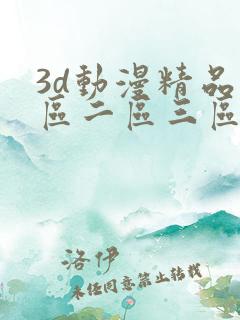 3d動漫精品
區二區三區
洛伊
未经同意禁止转载